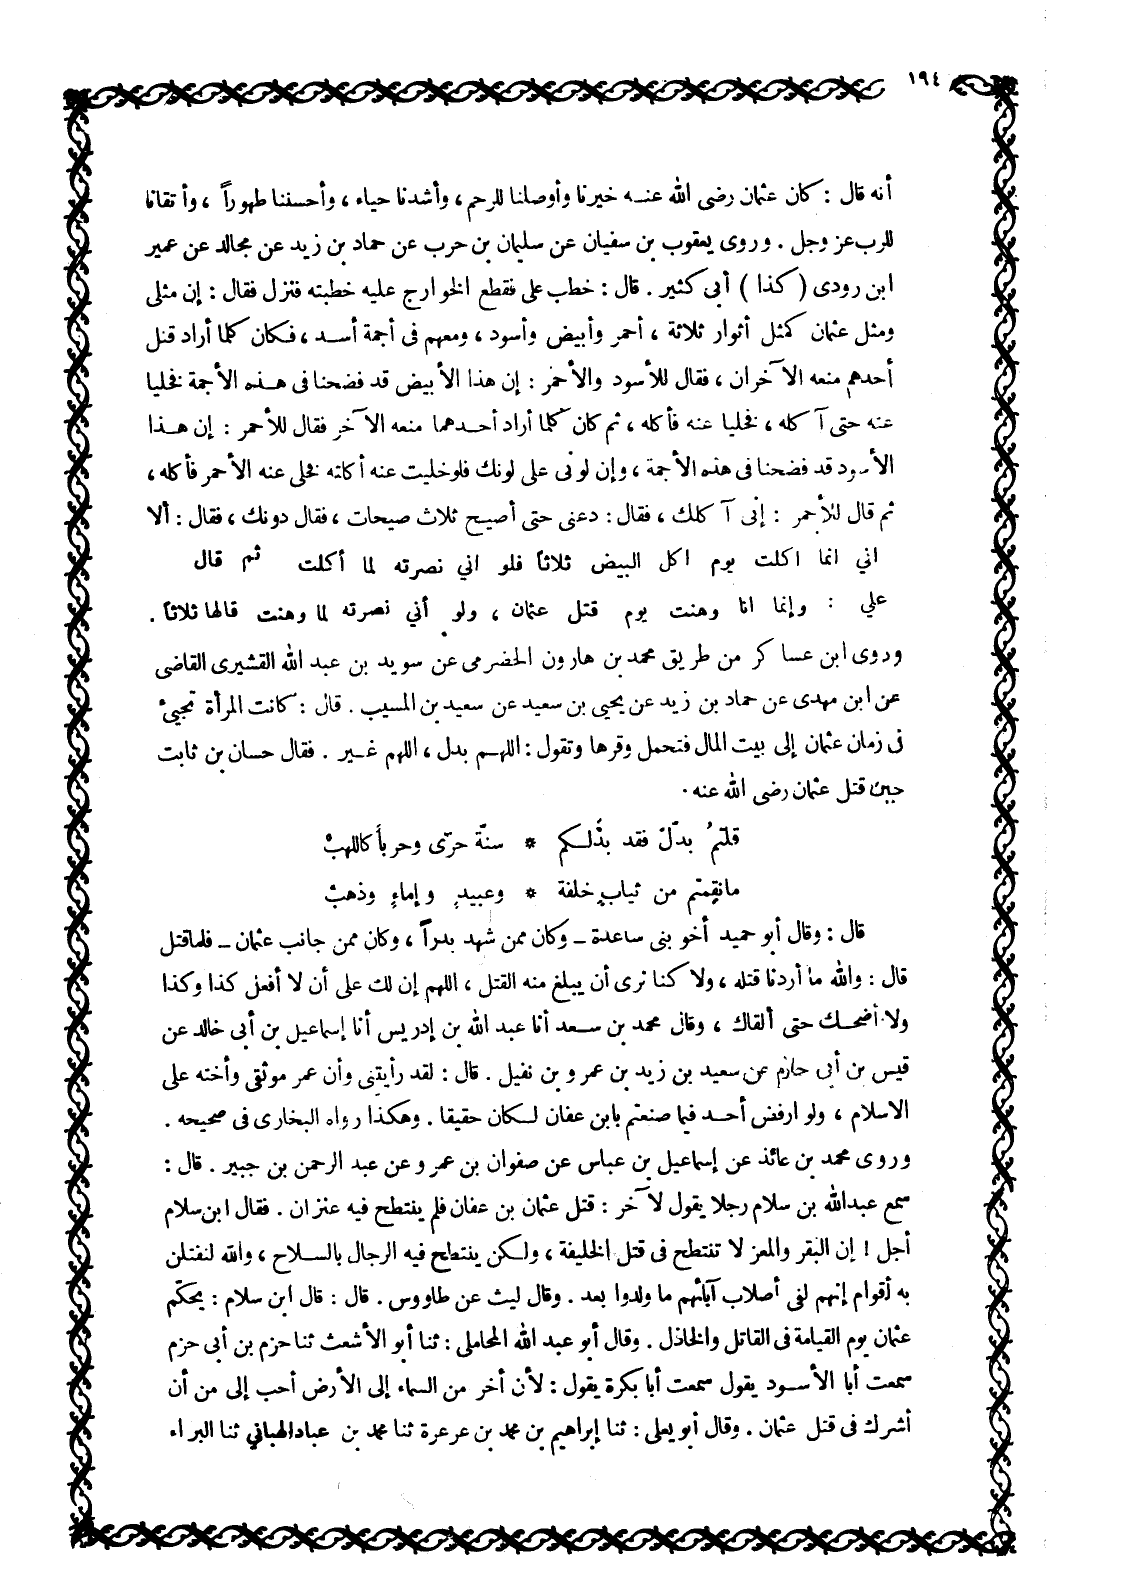 ١٩٤
أنه قال : كان عثمان رضى الله عنه خيرنا وأوصلنا للرحم ، وأشدنا حياء ، وأحسننا طهوراً ، وأتقانا
للرب عز وجل . وروى يعقوب بن سفيان عن سليمان بن حرب عن حماد بن زيد عن مجالد عن عمير
ابن رودى ( كذا ) أبى كثير . قال : خطب على فقطع الخوارج عليه خطبته فنزل فقال : إن مثلى
ومثل عثمان كمثل أثوار ثلاثة ، أحمر وأبيض وأسود ، ومعهم فى أجمة أسد ، فكان كلما أراد قتل
أحدهم منعه الآخران ، فقال للأسود والأحمر : إن هذا الأبيض قد فضحنا فى هذه الأجمة فخليا
عنه حتى آكله ، فخليا عنه فأكله ، ثم كان كلما أراد أحدهما منعه الآخر فقال للأحمر : إن هذا
الأسود قد فضحنا فى هذه الأجمة ، وإن لونى على لونك فلو خليت عنه أكلته فخلى عنه الأحمر فأكله ،
ثم قال للأحمر : إنى آكلك ، فقال : دعنى حتى أصيح ثلاث صيحات ، فقال دونك ، فقال : ألا
اني انما اكلت يوم اكل البيض ثلاثاً فلو اني نصرته لما أكلت ثم قال
علي : وإنما انا وهنت يوم قتل عثمان ، ولو أني نصرته لما وهنت قالها ثلاثاً .
وروى ابن عساكر من طريق محمد بن هارون الحضرمى عن سويد بن عبد الله القشيرى القاضى
عن ابن مهدى عن حماد بن زيد عن يحيى بن سعيد عن سعيد بن المسيب . قال : كانت المرأة تجيئ
فى زمان عثمان إلى بيت المال فتحمل وقرها وتقول : اللهم بدل ، اللهم غير . فقال حسان بن ثابت
حين قتل عثمان رضى الله عنه .
قلتمُ بدّلْ فقد بدَّلكم * سنةً حرّى وحرباً كاللهبْ
مانقمتم من ثيابٍ خلفة * وعبيدٍ وإماءٍ وذهبْ
قال : وقال أبو حميد أخو بنى ساعدة - وكان ممن شهد بدراً ، وكان ممن جانب عثمان - فلما قتل
قال : والله ما أردنا قتله ، ولا كنا نرى أن يبلغ منه القتل ، اللهم إن لك على أن لا أفعل كذا وكذا
ولا أضحك حتى ألقاك ، وقال محمد بن سعد أنا عبد الله بن إدريس أنا إسماعيل بن أبى خالد عن
قيس بن أبى حازم عن سعيد بن زيد بن عمرو بن نفيل . قال : لقد رأيتنى وأن عمر موثقى وأخته على
الاسلام ، ولو ارفض أحد فيما صنعتم بابن عفان لكان حقيقا . وهكذا رواه البخارى فى صحيحه .
وروى محمد بن عائذ عن إسماعيل بن عباس عن صفوان بن عمرو عن عبد الرحمن بن جبير . قال :
سمع عبدالله بن سلام رجلا يقول لآخر : قتل عثمان بن عفان فلم ينتطح فيه عنزان . فقال ابن سلام
أجل ! إن البقر والمعز لا تنتطح فى قتل الخليفة ، ولكن ينتطح فيه الرجال بالسلاح ، والله لنقتلن
به أقوام إنهم لفى أصلاب آبائهم ما ولدوا بعد . وقال ليث عن طاووس . قال : قال ابن سلام : يحكّم
عثمان يوم القيامة فى القاتل والخاذل . وقال أبو عبد الله المحاملى : ثنا أبو الأشعث ثنا حزم بن أبى حزم
سمعت أبا الأسود يقول سمعت أبا بكرة يقول : لأن أخر من السماء إلى الأرض أحب إلى من أن
أشرك فى قتل عثمان . وقال أبو يعلى : ثنا إبراهيم بن محمد بن عرعرة ثنا محمد بن عباد الهباني ثنا البراء